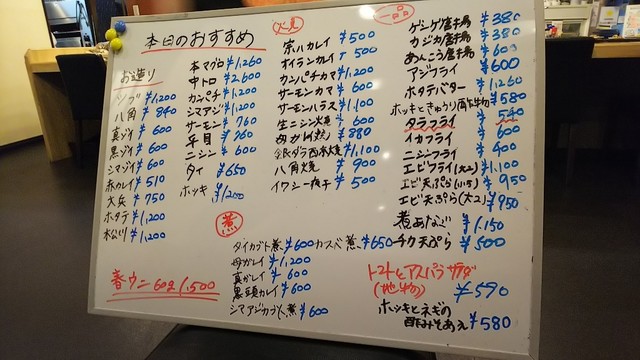 本日のおすすめ
お造り
ソイ ¥1,200
八角 ¥840
真ゾイ ¥600
黒ゾイ ¥600
シマゾイ ¥600
赤カレイ ¥510
大兵 ¥750
ホタテ ¥1,200
松川 ¥1,200
春ウニ 60g 1,500
本マグロ ¥1,260
中トロ ¥2,600
カンパチ ¥1,200
シマアジ ¥1,200
サーモン ¥760
平目 ¥760
ニシン ¥600
タイ ¥650
ホッキ ¥1,200
宗八カレイ ¥500
オイランカレイ ¥500
カンパチカマ ¥1,200
サーモンカマ ¥600
サーモンハラス ¥1,100
生ニシン焼 ¥600
¥880
銀ダラ西京焼 ¥1,100
八角焼 ¥900
イワシ一夜干 ¥500
煮
タイカブト煮 ¥600 カスベ煮 ¥650
母ガレイ ¥1,200
真ガレイ ¥600
黒頭カレイ ¥600
シマアジカブト煮 ¥600
一品
ゲンゲ唐揚 ¥380
カジカ唐揚 ¥380
あんこう唐揚 ¥600
アジフライ ¥600
ホタテバター ¥1,260
ホッキときゅうり酢の物 ¥580
タラフライ ¥540
イカフライ ¥600
ニシンフライ ¥400
エビフライ(大2) ¥1,100
エビ天ぷら(小5) ¥950
エビ天ぷら(大2) ¥950
煮あなご ¥1,150
チカ天ぷら ¥500
トマトとアスパラサラダ
(地物) ¥590
ホッキとネギの
酢みそあえ ¥580